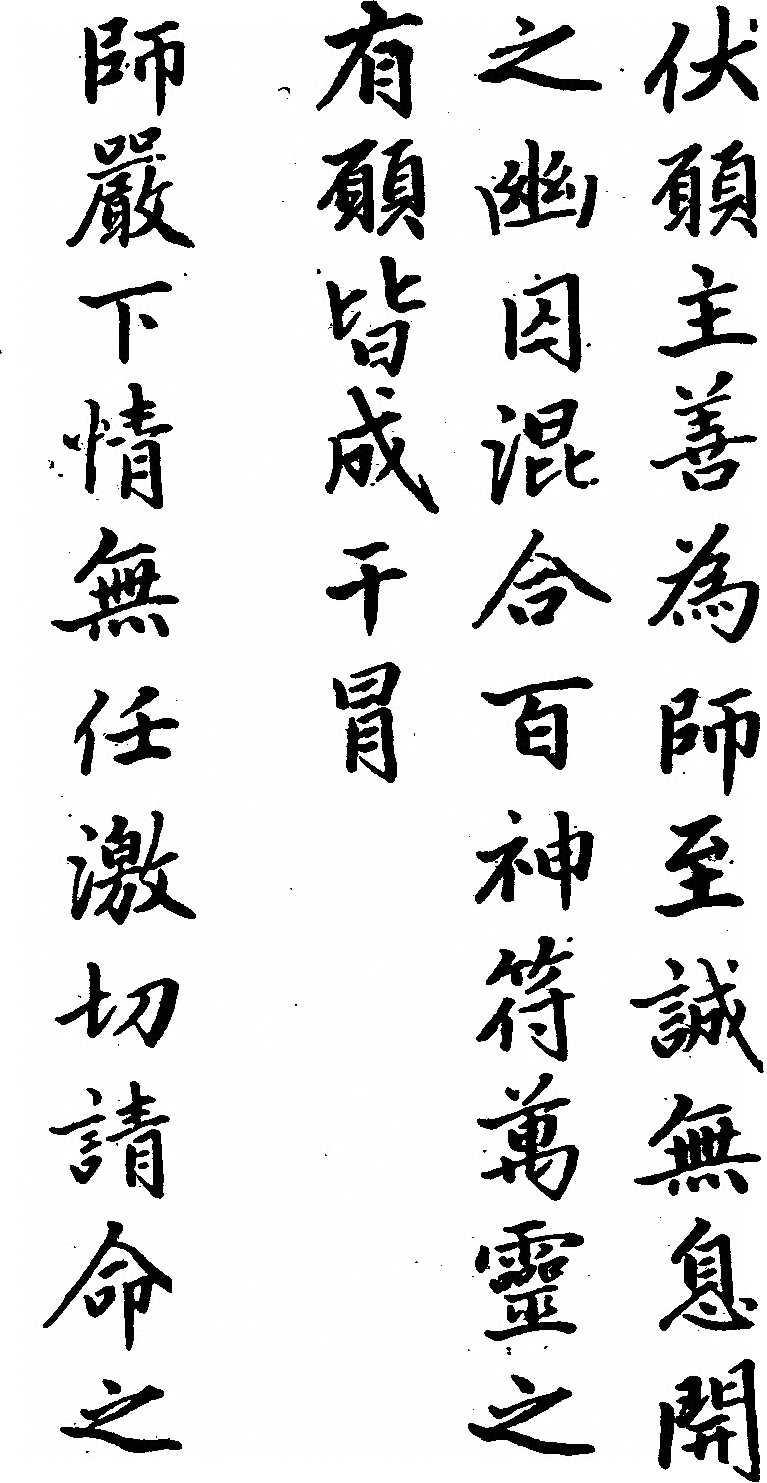 伏願主善為師至誠無息開
之幽囚混合百神符萬靈之
有願皆成干冒
師嚴下情無任激切請命之